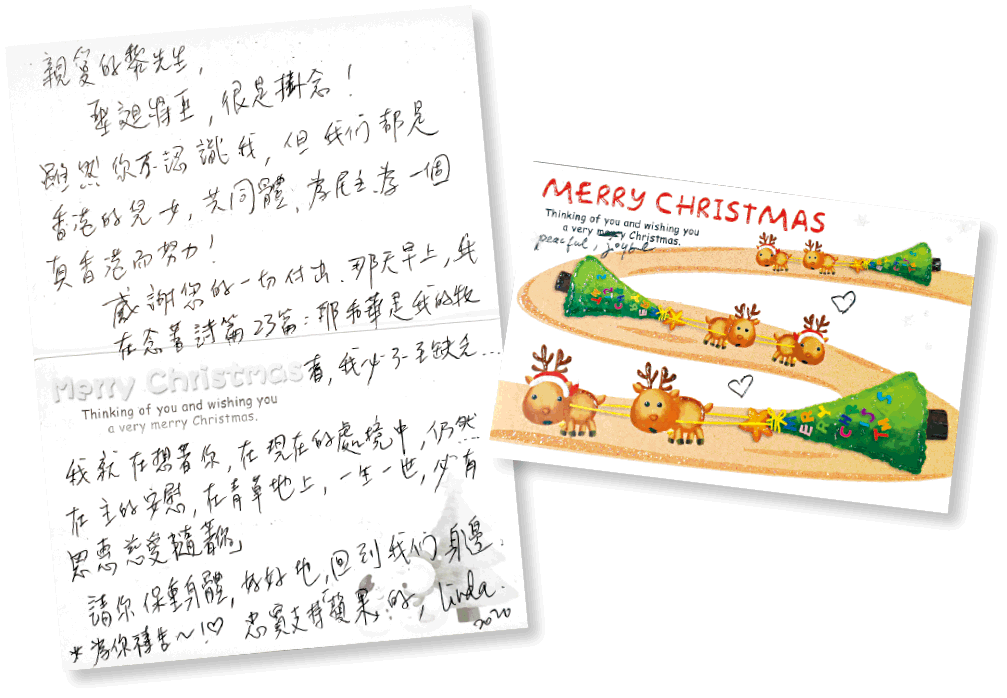 親愛的黎先生,
聖誕將至,很是掛念!
雖然你不認識我,但我们都是
香港的兒女,共同體,為民主、為一個
真香港而努力!
感謝您的一切付出、那天早上,我
在念著詩篇23篇:耶和華是我的牧
者,我必不至缺乏...
Merry Christmas
Thinking of you and wishing you
a very merry Christmas.
我就在想著你,在現在的處境中,仍然...
在主的安慰,在青草地上,一生一世,必有
恩惠慈愛隨著你」
請你保重身體,好好地,回到我们身邊.
忠實支持「蘋果」的, Linda.
2020
*為你禱告~!♡
MERRY CHRISTMAS
Thinking of you and wishing you
a very merry Christmas.
peaceful, joyful